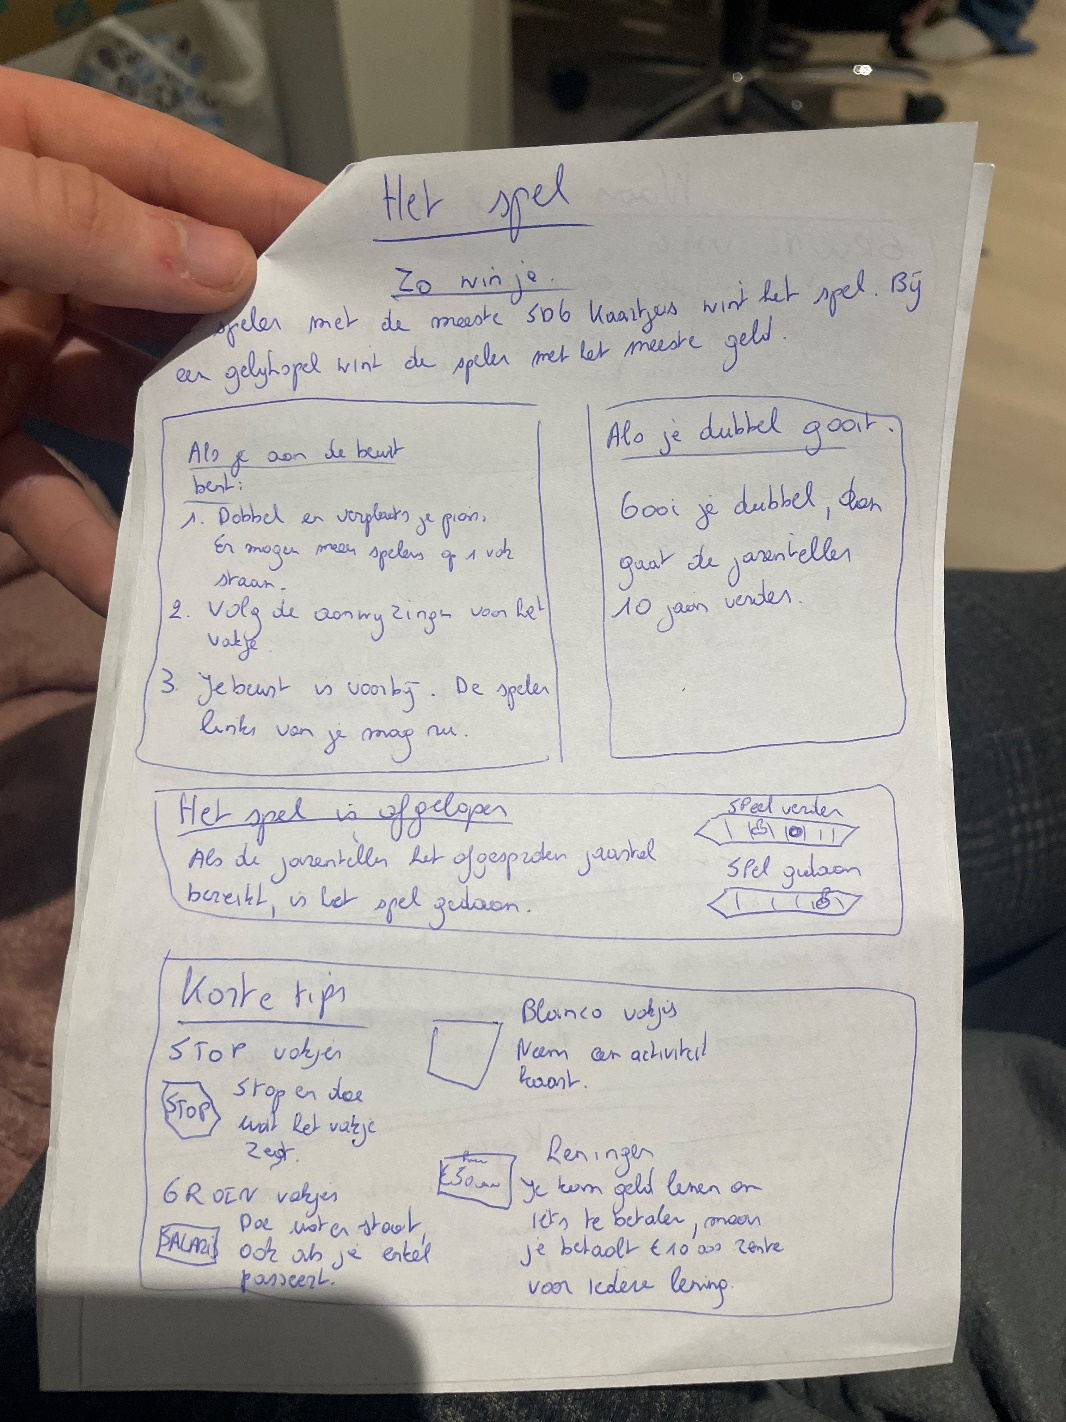 Het spel
Zo win je.
speler met de meeste SDG kaartjes wint het spel. Bij
een gelijkspel wint de speler met het meeste geld.
Als je aan de beurt
bent:
1. Dobbel en verplaats je pion.
Er mogen meer spelers op 1 vak
staan.
2. Volg de aanwyzingen voor het
vakje.
3. Je beurt is voorbij. De speler
links van je mag nu.
Als je dubbel gooit.
Gooi je dubbel, dan
gaat de jarenteller
10 jaar verder.
Het spel is afgelopen
Als de jarenteller het afgesproken jaartal
bereikt, is het spel gedaan.
Speel verder
Spel gedaan
Korte tips
STOP vakjes
STOP
Stop en doe
wat het vakje
zegt.
GROEN vakjes
SALARIS
Doe wat er staat,
ook als je enkel
passeert.
Blanco vakjes
Neem een activiteit
kaart.
Leningen
Je kan geld lenen om
iets te betalen, maar
je betaalt €10 000 rente
voor iedere lening.